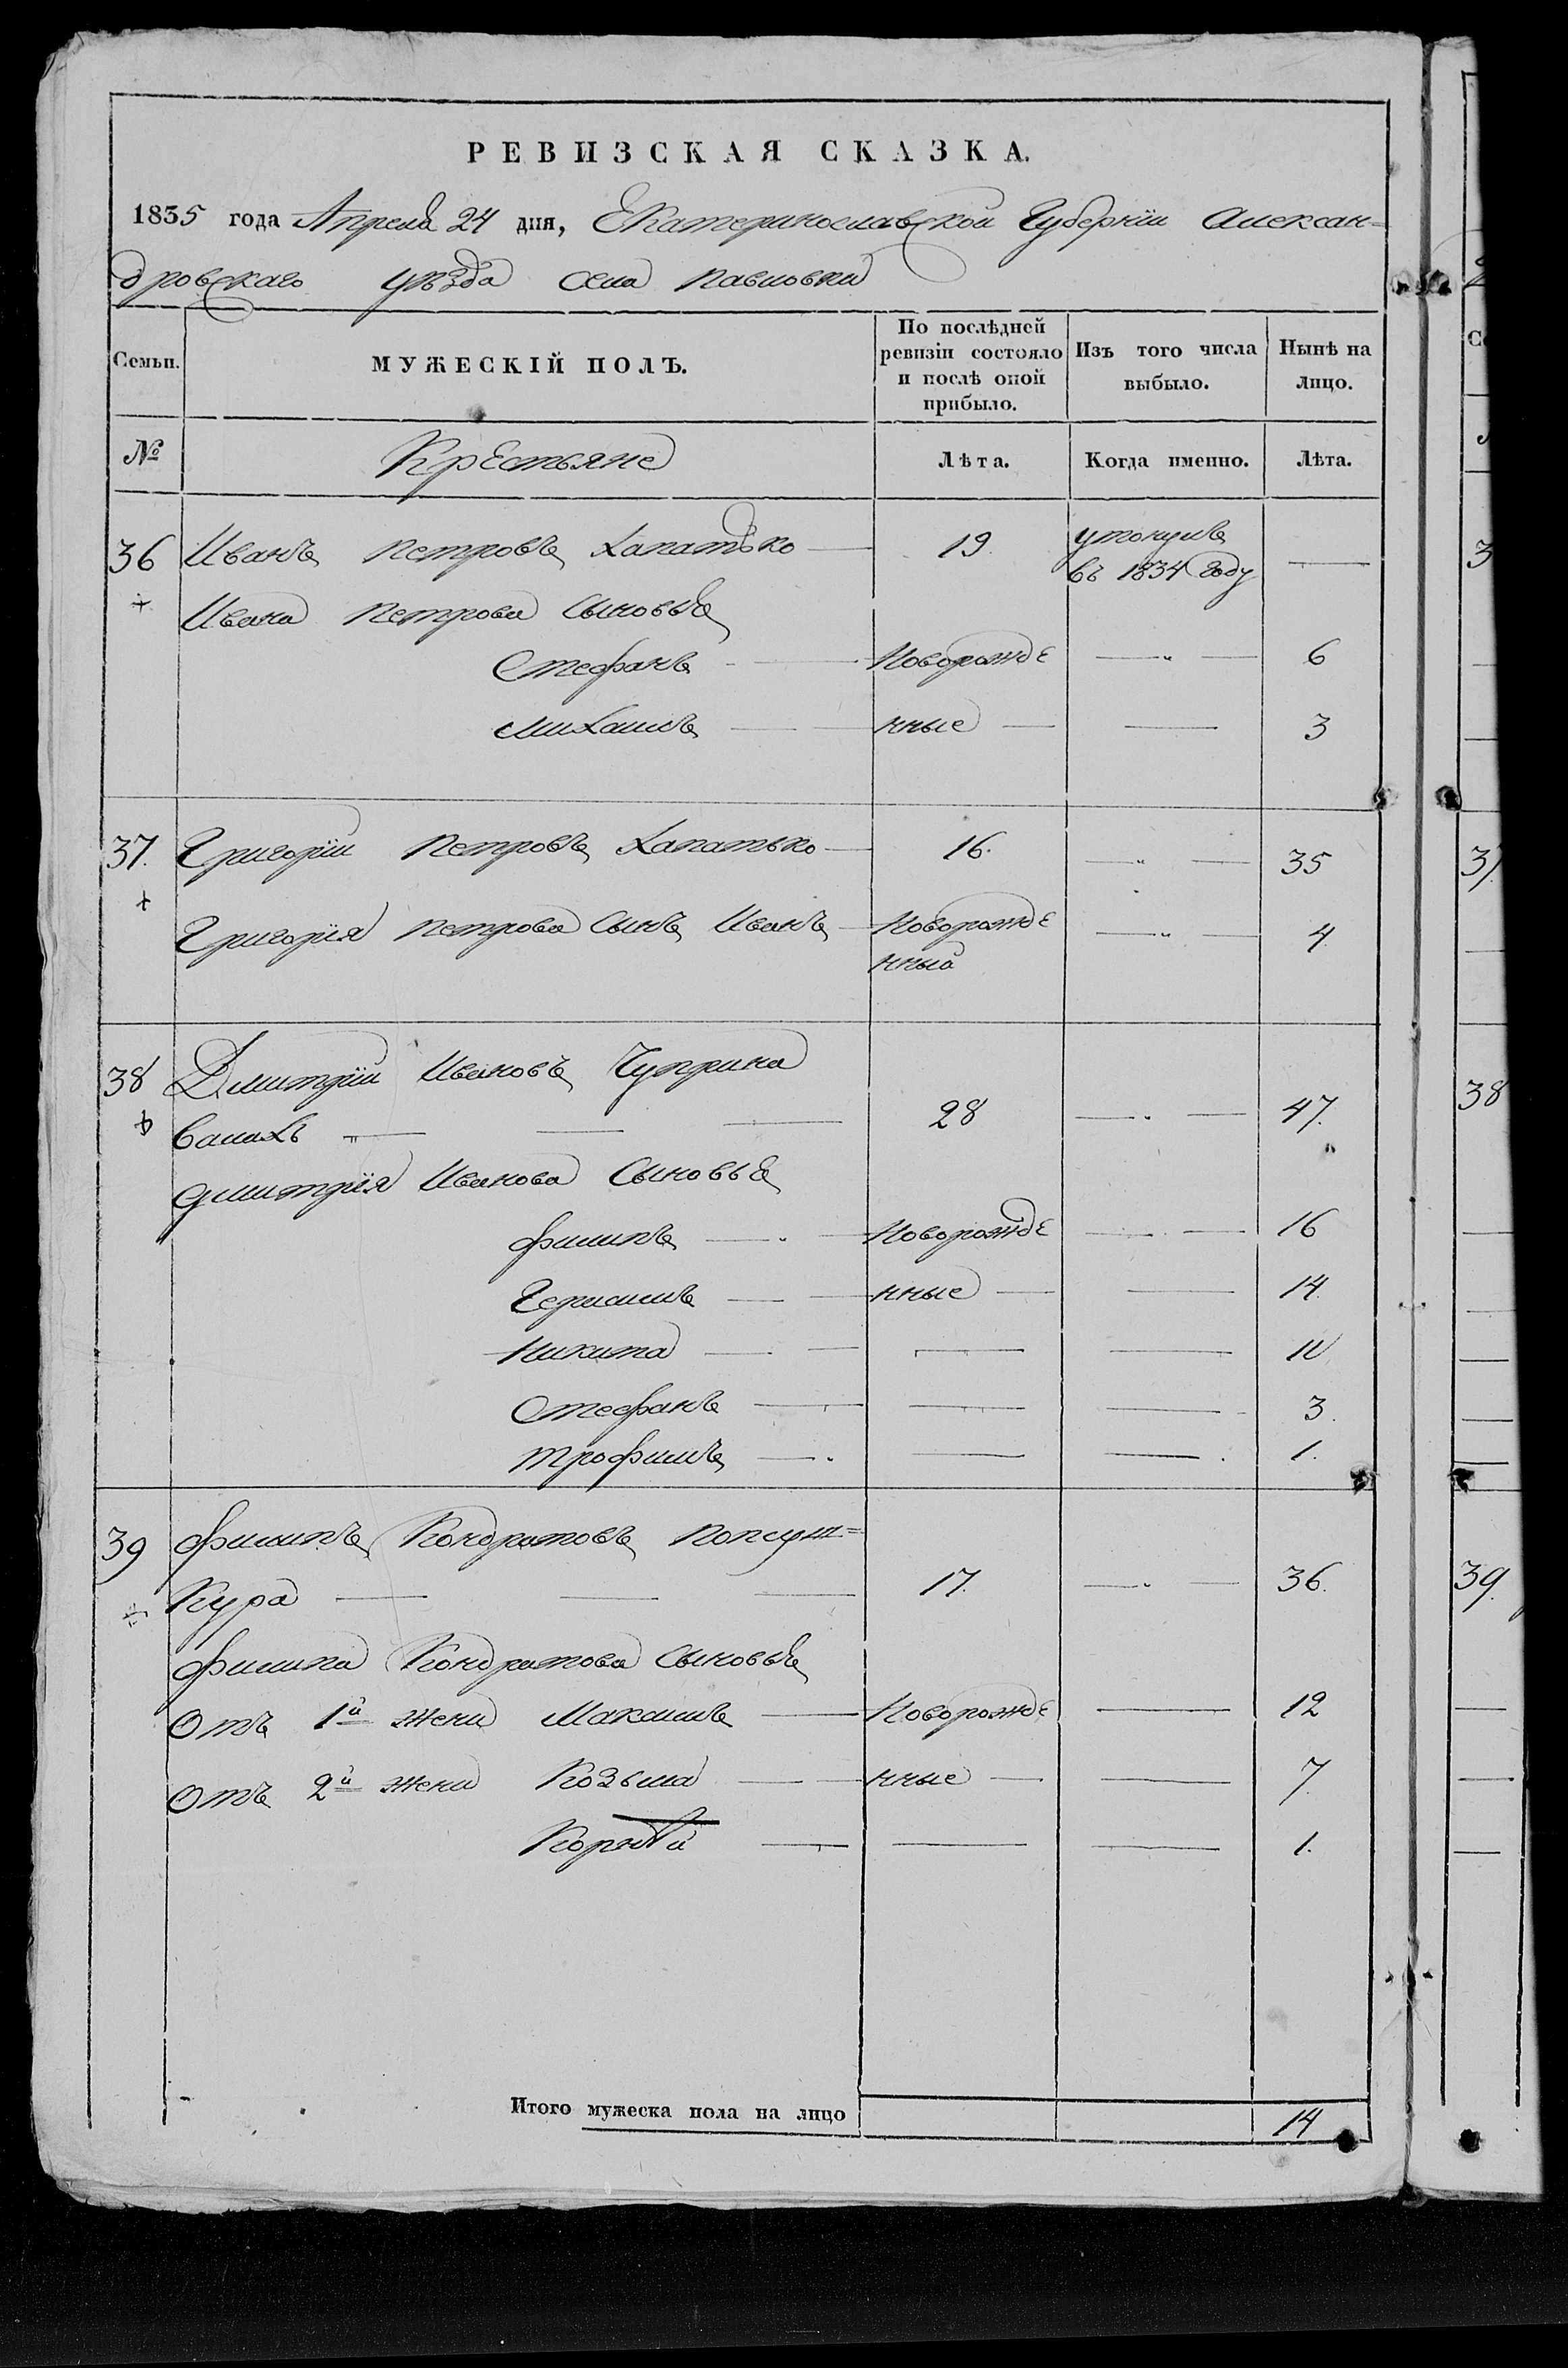 РЕВИЗСКАЯ СКАЗКА.
1835 года Апреля 24 дня, Екатеринославской Губернiи Алексан=
дровскаго уѣзда села Павловки
Семьи. МУЖЕСКІЙ ПОЛЪ. По послѣдней ревизіи состояло и послѣ оной прибыло. Изъ того числа выбыло. Нынѣ на лицо.
№ Крестьяне Лѣта. Когда именно. Лѣта.
36 Иванъ Петровъ Хапатько — 19. утонулъ въ 1834 году —
Ивана Петрова Сыновья
Стефанъ — Новорожде — " — 6
Михаилъ — нные — — 3
37. Григорiй Петровъ Хапатько — 16. — " — 35
Григорiя Петрова Сынъ Иванъ — Новорожде — " — 4
нный
38 Дмитрiй Ивановъ Чуприна
28 — " — 47.
Дмитрiя Иванова Сыновья
Филипъ — " — Новорожде — — 16
Герасимъ — — нные — — 14.
Никита — — — — 10
Стефанъ — — — 3.
Трофимъ — — — 1.
39 Филипъ Кондратовъ Попсуш=
Кура — — — 17. — " — 36.
Филипа Кондратова Сыновья
Отъ 1й жени Максимъ — Новорожде — 12
Отъ 2й жени Козьма — нные — — 7.
Корнѣй — — — 1.
Итого мужеска пола на лицо 14
3
37.
38
39.